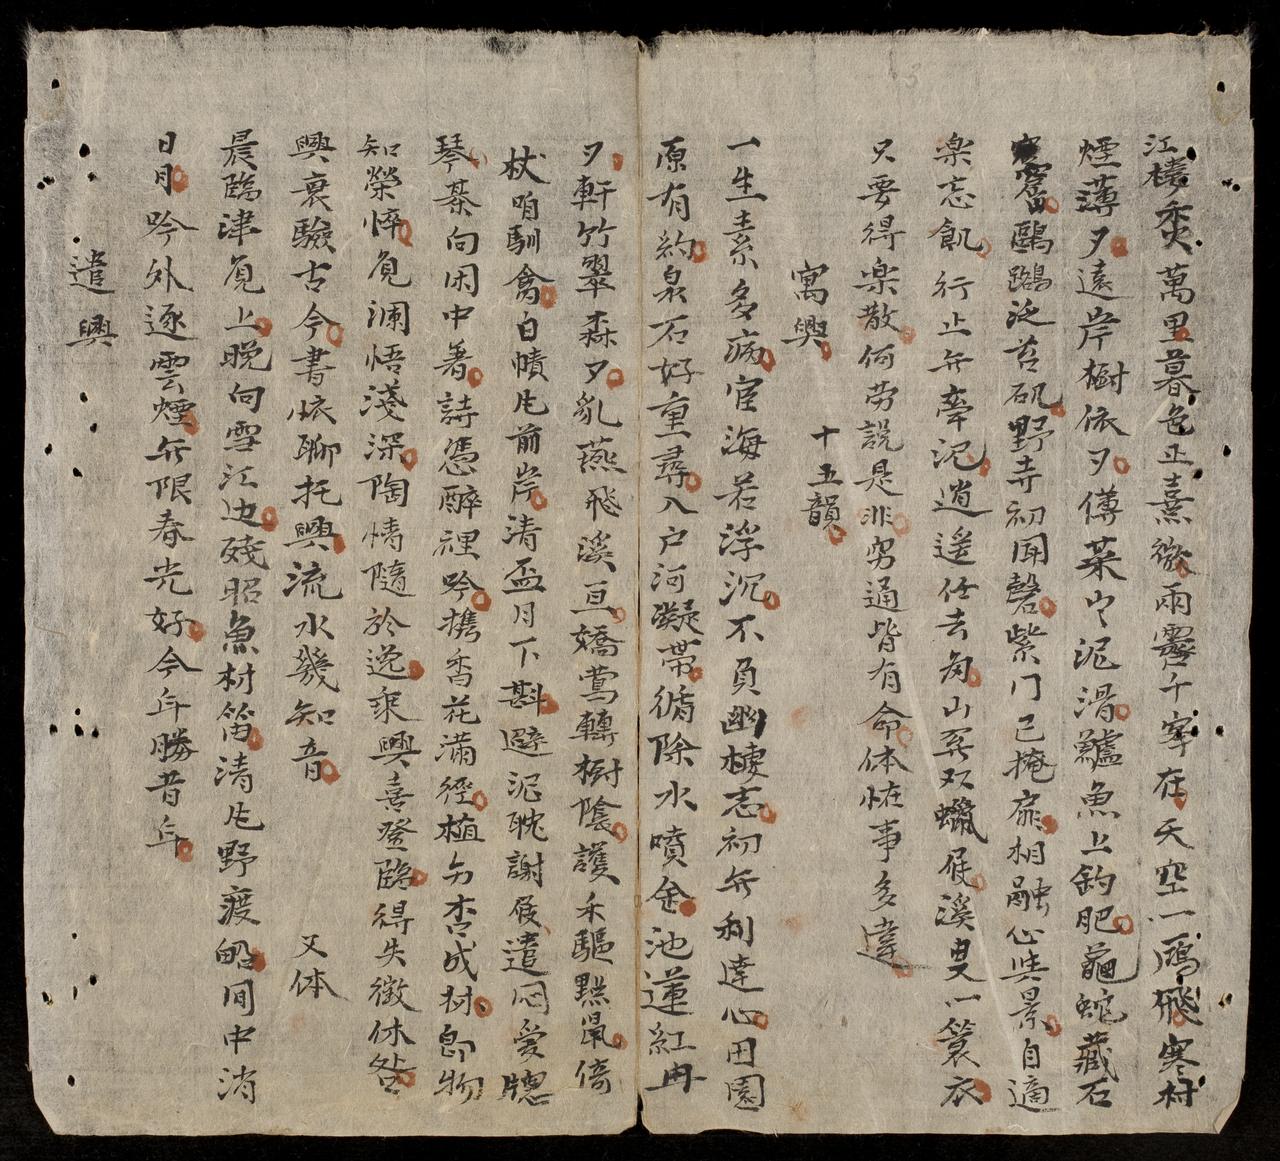 江樓黍萬里暮色正熹微雨霽千峯在天空一鴈飛寒村
煙薄夕遠岸樹依夕傅菜山泥滑鱸魚上釣肥龜蛇藏石
窟鷗鷺泛苔磯野寺初聞磬紫门已掩扉相融心與景自適
楽忘飢行止無牽泥逍遥任去匆山翠双蠟屐溪叟一簑衣
只要得楽散何劳說是非穷通皆有命休恠事多違
寓興 十五韻
一生素多病宦海若浮沉不負幽棲志初無利達心田園
原有約泉石好重尋入户河凝帶循除水噴金池蓮紅冉
夕軒竹翠森夕乳燕飛溪亘嬌鶯轉樹陰護禾驅黠鼠倚
杖咱馴禽白幘凭前岸清盃月下斟避泥耽謝屐遣闷爱牕
琴棊向闲中著詩憑醉裡吟携香花满徑植为杏成材即物
知榮悴負瀾悟淺深陶情隨於逸乘興喜登臨得失徵休咎
興衰驗古今書怀聊托興流水幾知音 又体
晨臨津負上晚向雪江边殘昭魚村笛清凭野渡船间中消
日月吟外逐雲煙無限春光好今年勝昔年
遣興